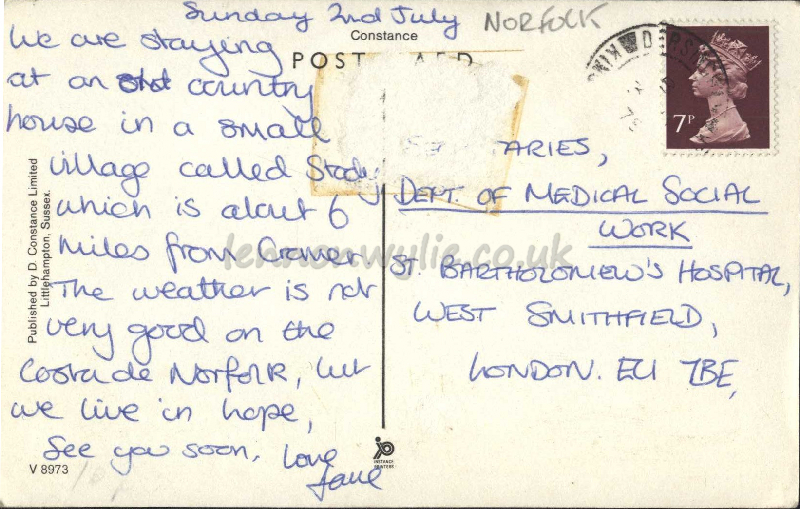 Sunday 2nd July
NORFOLK
Constance
POST CARD
We are staying
at an old country
house in a small
village called Stody
which is about 6
miles from Cromer
The weather is not
very good on the
Costa de Norfolk, but
we live in hope,
See you soon, love
Jane
TARIES,
DEPT. OF MEDICAL SOCIAL
WORK
ST BARTHOLOMEW'S HOSPITAL,
WEST SMITHFIELD,
LONDON. EC1 7BE,
7P
Published by D. Constance Limited
Littlehampton, Sussex.
V 8973
INSTANCE
PRINTERS
lennonwylie.co.uk